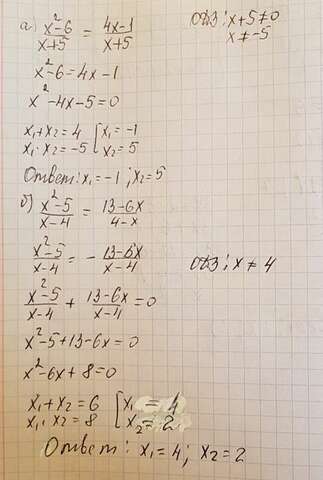 а) x²-6/x+5 = 4x-1/x+5 ОДЗ: x+5≠0
x≠-5
x²-6=4x-1
x²-4x-5=0
x₁+x₂=4 [x₁=-1
x₁·x₂=-5 [x₂=5
Ответ: x₁=-1; x₂=5
б) x²-5/x-4 = 13-6x/4-x
x²-5/x-4 = - 13-6x/x-4 ОДЗ: x≠4
x²-5/x-4 + 13-6x/x-4 =0
x²-5+13-6x=0
x²-6x+8=0
x₁+x₂=6 [x₁=4
x₁·x₂=8 [x₂=2
Ответ: x₁=4; x₂=2